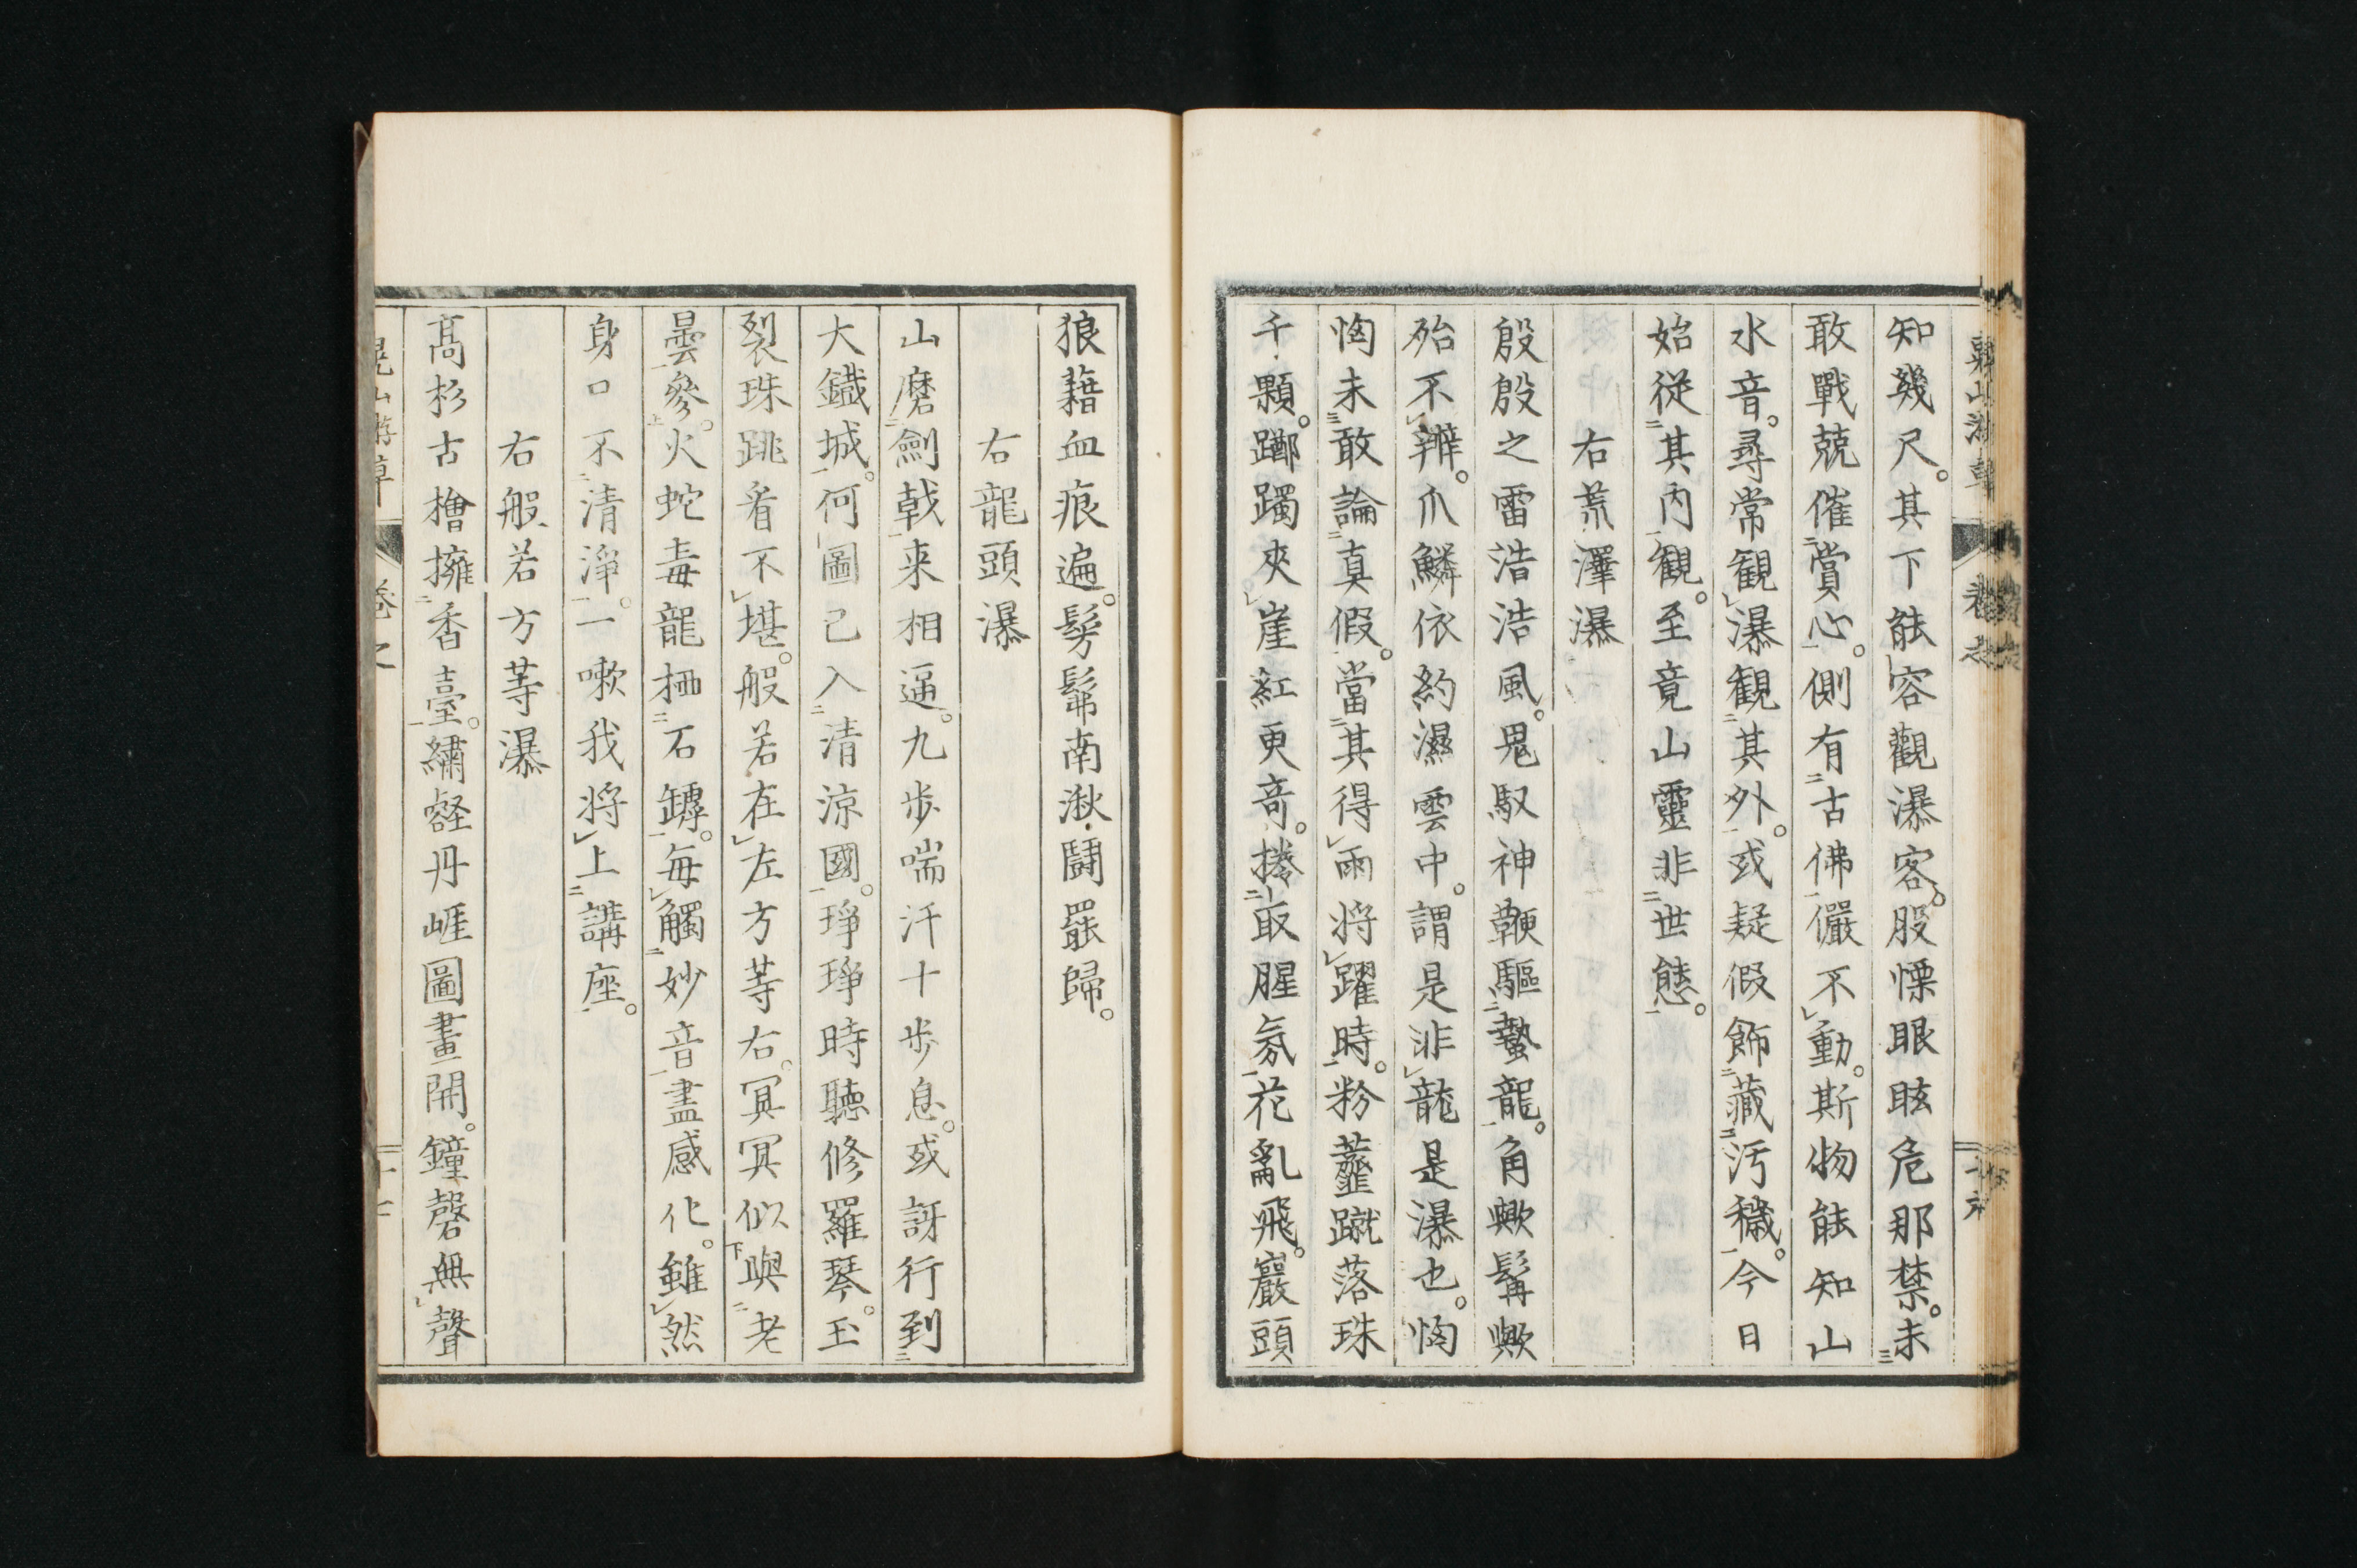 知幾尺。其下能容觀瀑客。股慄眼眩危那禁。未
敢戰兢催賞心。側有古佛儼不動。斯物能知山
水音。尋常観瀑観其外。或疑假飾藏汚穢。今日
始従其内観。至竟山靈非世態。
右荒澤瀑
殷殷之雷浩浩風。鬼馭神鞭驅蟄龍。角歟髯歟
殆不辨。爪鱗依約濕雲中。謂是非龍是瀑也。恟
恟未敢論真假。當其得雨将躍時。粉虀蹴落珠
千顆。躑躅夾崖紅更竒。捲取腥氛花亂飛。巖頭
狼藉血痕遍。髣髴南湫鬪罷歸。
右龍頭瀑
山磨劍戟来相逼。九歩喘汗十歩息。或訝行到
大鐡城。何圖已入清涼國。琤琤時聽修羅琴。玉
裂珠跳看不堪。般若在左方等右。冥冥似與老
曇參。火蛇毒龍栖石罅。毎觸妙音盡感化。雖然
身口不清淨。一嗽我将上講座。
右般若方等瀑
髙杉古檜擁香臺。繡壑丹崕圖畫開。鐘磬無聲
晃山游草
卷之